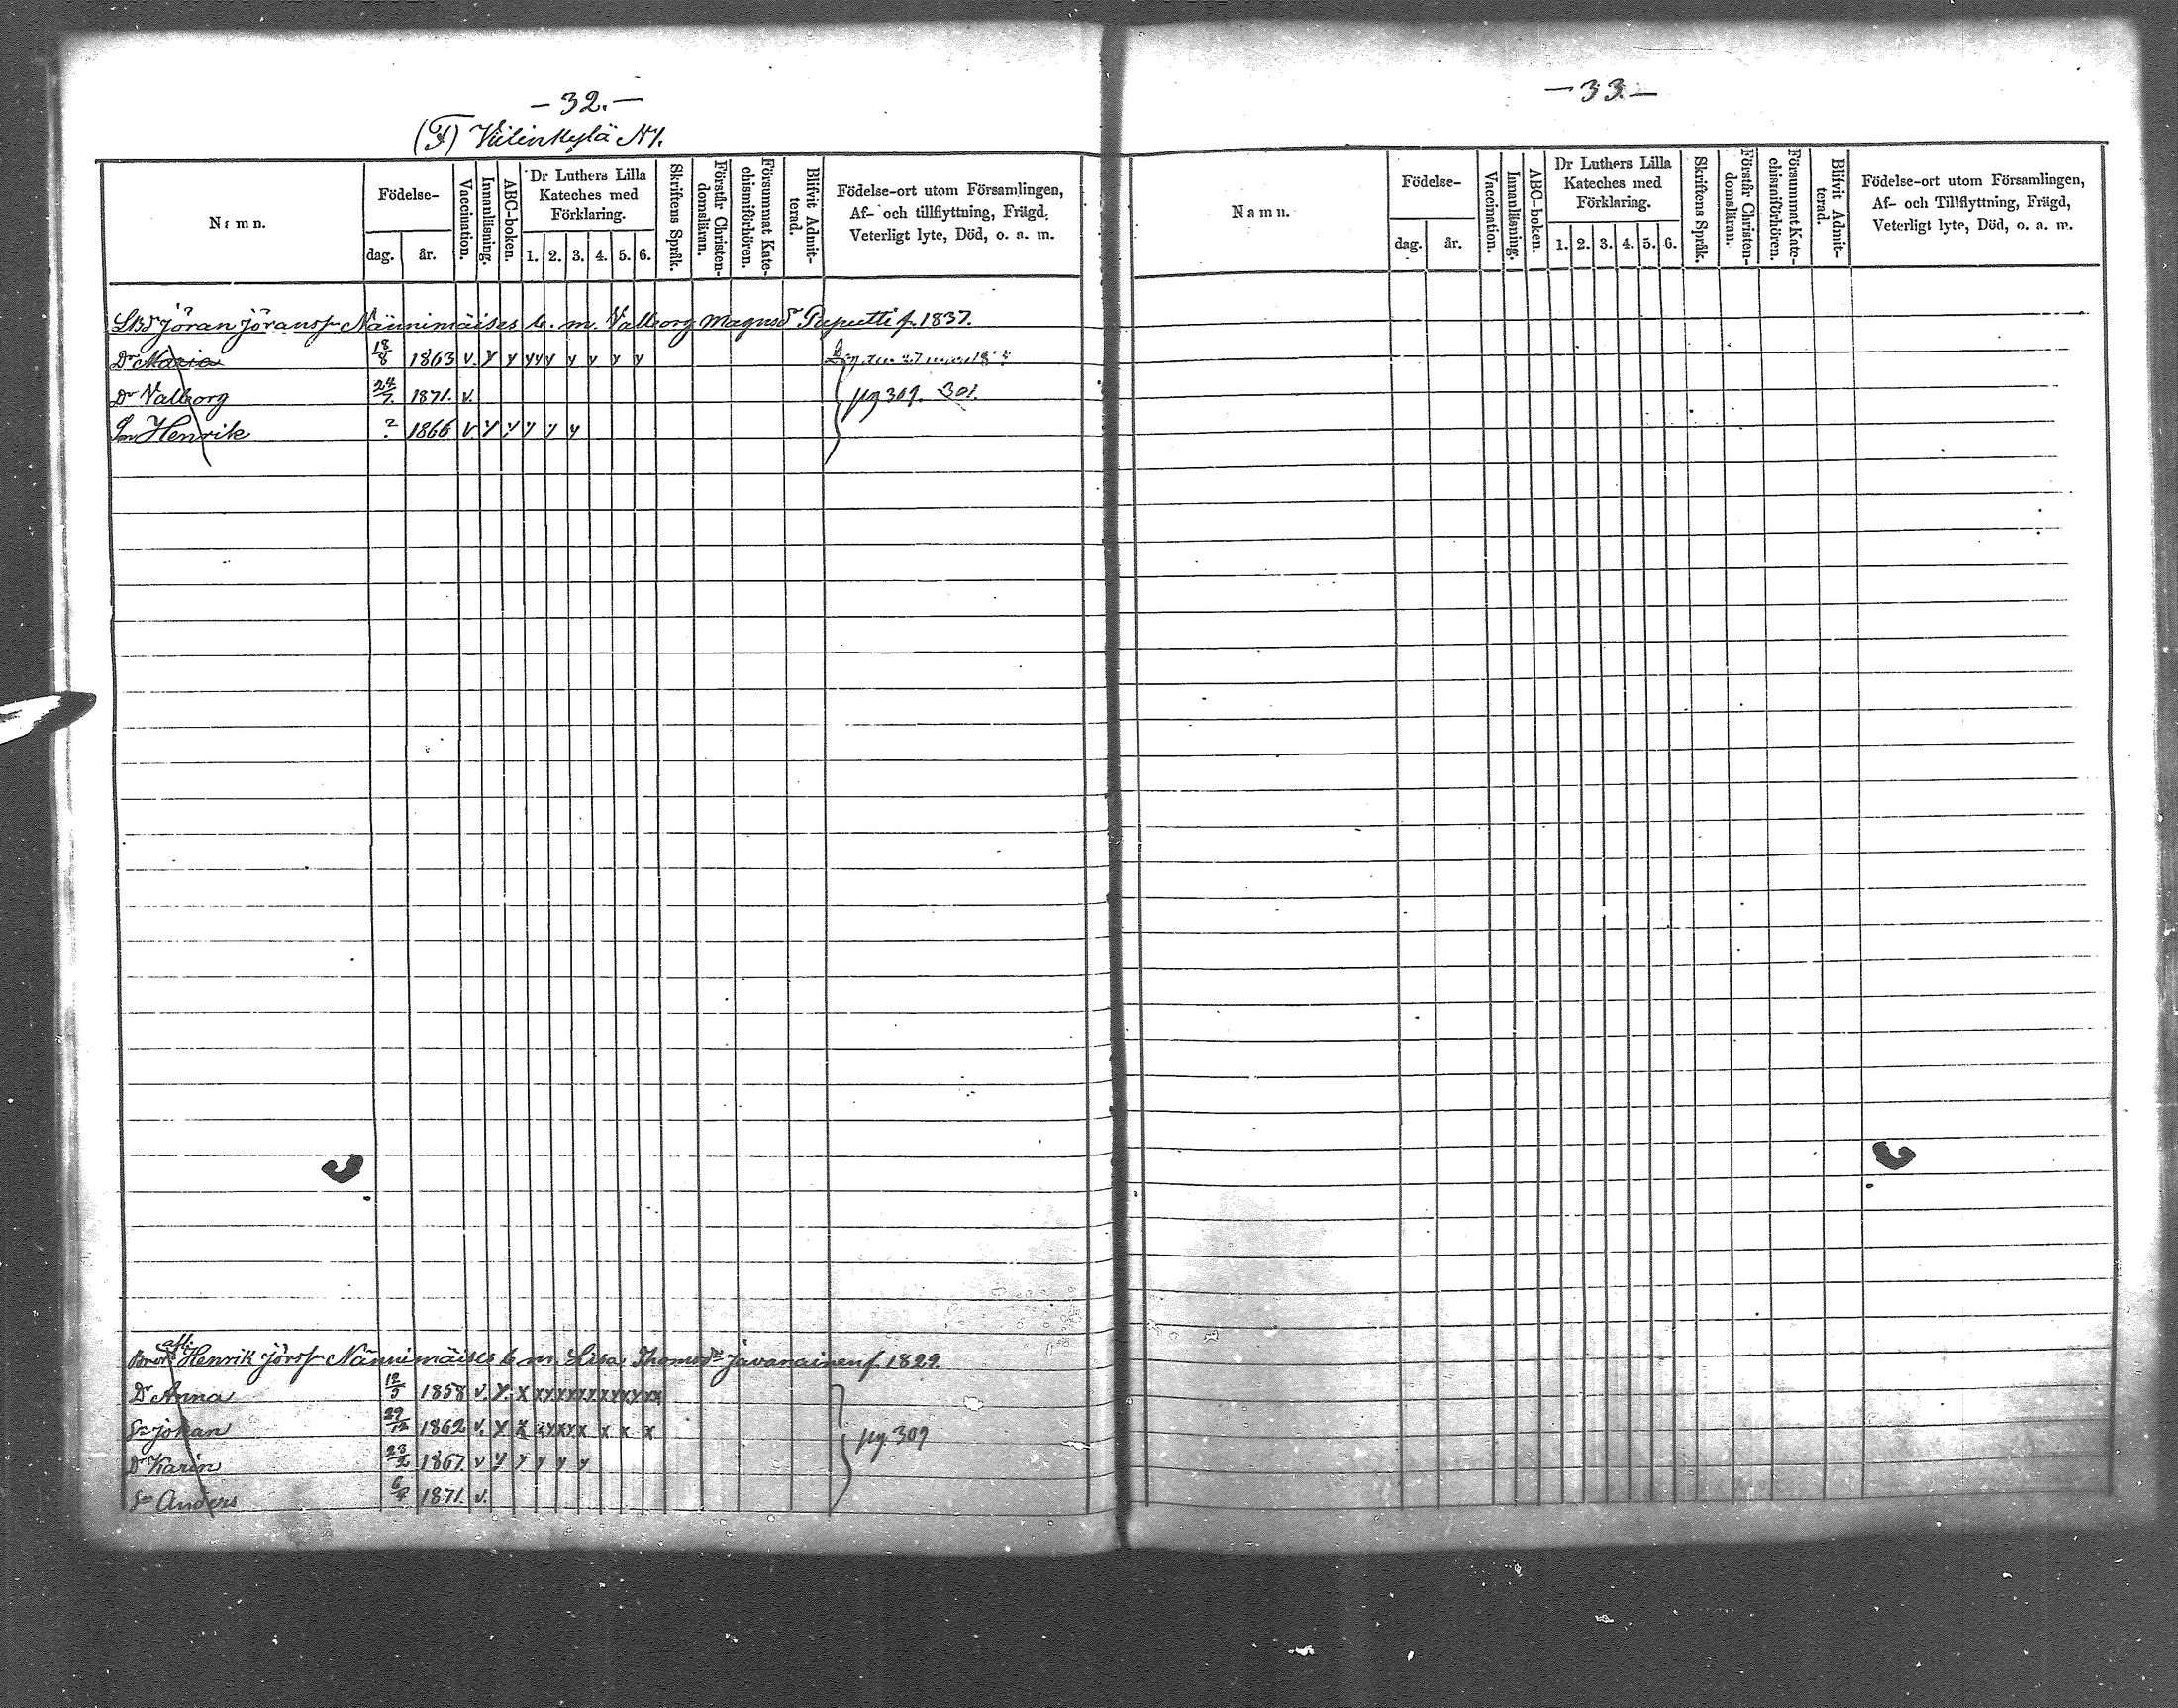 — 32. —
(F) Viilinkylä N1.
Namn. Födelse- dag. år. Vaccination. Innanläsning. ABC-boken. Dr Luthers Lilla Kateches med Förklaring. 1. 2. 3. 4. 5. 6. Skriftens Språk. Förstår Christendomsläran. Försummat Katechismiförhören. Blifvit Admitterad. Födelse-ort utom Församlingen, Af- och tillflyttning, Frägd, Veterligt lyte, Död, o. a. m.
Jöran Jöransr Nännimäises b. m. Valborg Magnsdr Paputti f. 1837.
Dr Maria 18/8 1863 v. y y y y y y y y y
Dr Valborg 24/7 1871. v. pg 309. 301.
Sn Henrik ? 1866 v y y y y y
Brors Henrik Jörsr Nännimäises b. m. Lisa Thomsdr Javanainen f. 1829.
Dr Anna 12/5 1858 v. y. x x y x x x x y x x x y x x
Sn Johan 29/12 1862 v. x x x y x y x x x x pg. 309
Dr Karin 23/2 1867. v y y y y y
Sn Anders 1871. v.
— 33. —
Namn. Födelse- dag. år. Vaccination. Innanläsning. ABC-boken. Dr Luthers Lilla Kateches med Förklaring. 1. 2. 3. 4. 5. 6. Skriftens Språk. Förstår Christendomsläran. Försummat Katechismiförhören. Blifvit Admitterad. Födelse-ort utom Församlingen, Af- och Tillflyttning, Frägd, Veterligt lyte, Död, o. a. m.